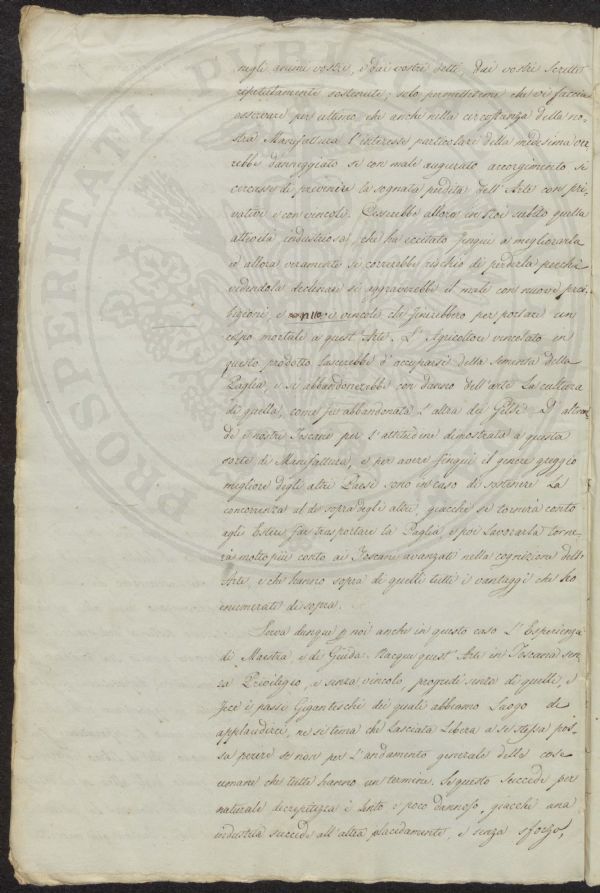 negli animi vostri, e dai vostri detti, dai vostri scritti
repetutamente sostenute; solo permettetemi che vi faccia
osservare per ultimo che anche nella circostanza della no-
stra Manifattura l'interesse particolare della medesima ver
rebbe danneggiato se con male augurato accorgimento si
cercasse di prevenire la sognata perdita dell'Arte con pri-
vative e con vincoli. Cesserebbe allora in noi subito quella
attività industriosa, che ha eccitato finqui a migliorarla
ed allora veramente si correrebbe rischio di perderla perchè
vedendola declinare si aggraverebbe il male con nuove proi-
bizioni, e vincoli che finirebbero per portare un
colpo mortale a quest'Arte. L'Agricoltore vincolato in
questo prodotto lascerebbe d'occuparsi della sementa della
Paglia, e si abbandonerebbe con danno dell'arte la cultura
di quella, come fu abbandonata l'altra dei Gelsi. D'altron
de i nostri Toscani per l'attitudine dimostrata a questa
sorte di Manifattura, e per avere finqui il genere greggio
migliore degli altri Paesi sono in caso di sostenere la
concorrenza al di sopra degli altri, giacchè se tornerà conto
agli Esteri far trasportare la Paglia, e poi lavorarla torne-
rà molto più conto ai Toscani avanzati nella cognizione dell'
Arte, e che hanno sopra di quelli tutti i vantaggi che ho
enumerati di sopra.
Serva dunque p noi anche in questo caso l'Esperienza
di Maestra e di Guida. Nacque quest'Arte in Toscana sen-
za Privilegio, e senza vincolo, progredì senza di quelli, e
fece i passi Giganteschi dei quali abbiamo luogo di
applaudirci, ne si tema che lasciata libera a se stessa pos-
sa perire se non per l'andamento generale delle cose
umane che tutte hanno un termine. Se questo succede per
naturale decrepitezza è lento e poco dannoso, giacchè una
industria succede all'altra placidamente, e senza sforzo,
PROSPERITATI PVB